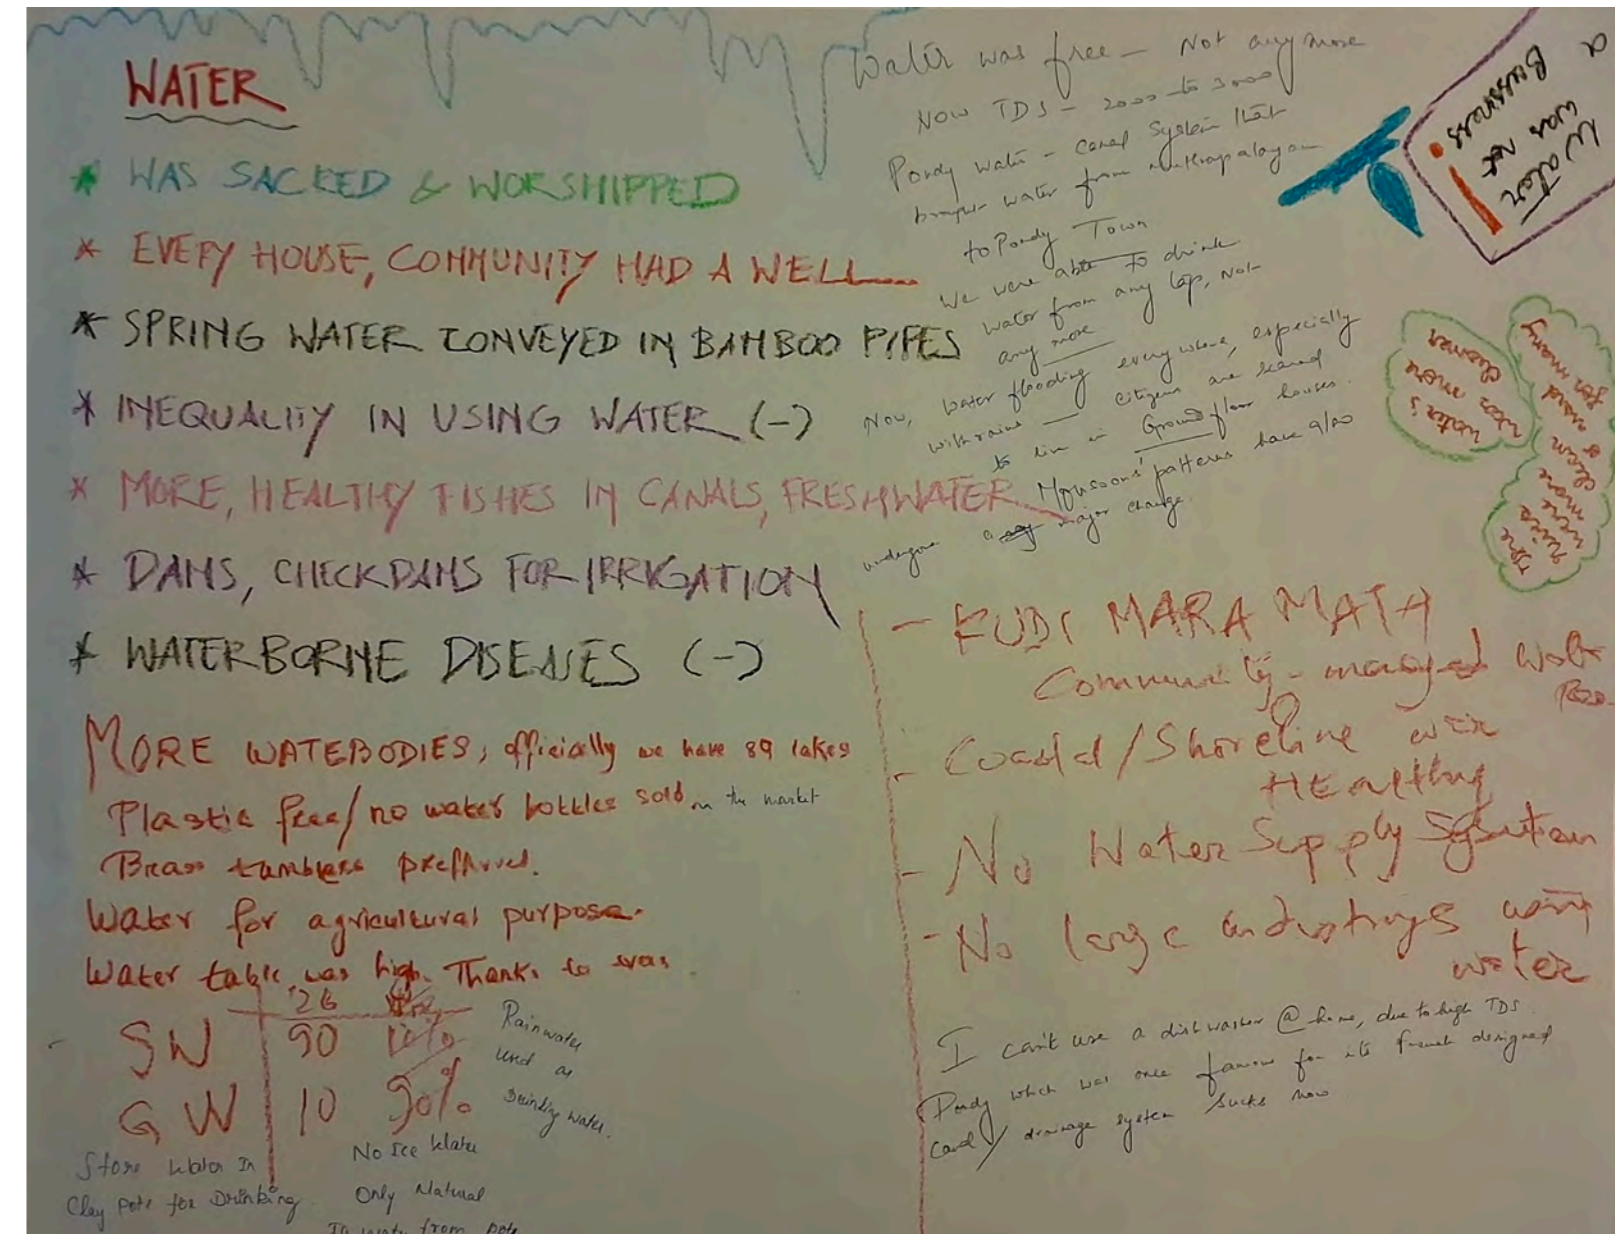 WATER
* WAS SACRED & WORSHIPPED
* EVERY HOUSE, COMMUNITY HAD A WELL
* SPRING WATER CONVEYED IN BAMBOO PIPES
* INEQUALITY IN USING WATER (-)
* MORE, HEALTHY FISHES IN CANALS, FRESHWATER
* DAMS, CHECKDAMS FOR IRRIGATION
* WATERBORNE DISEASES (-)
MORE WATEBODIES, officially we have 89 lakes
Plastic free/no water bottles sold in the market
Brass tumblers preffured.
Water for agricultural purpose.
Water table was high. Thanks to
SW 90 10%
GW 10 90%
Rainwater
used as
Drinking water.
Store Water In
Clay Pots for Drinking
No Ice Water
Only Natural
water from pots
Water was free - Not anymore
Now TDS - 2000 to 3000
Pondy water - canal System that
water from Muthrapalayam
to Pondy Town
We were able to drink
water from any tap, not
any more
Now, water flooding everywhere, especially
with rains - citizens are scared
to live in Ground floor houses.
Monsoons' patterns have also
undergone major change.
Water
was not
a
Bussiness
water's
was more
cleaner
The
were
more
clean
for many
- KUDI MARA MATH
Community-managed
- Coastal/Shoreline was
HEalthy
- No Water Supply
- No large using
water
I can't use a dishwasher @ home, due to high TDS.
Pondy which was once famous for its French designed
canal/drainage system sucks now